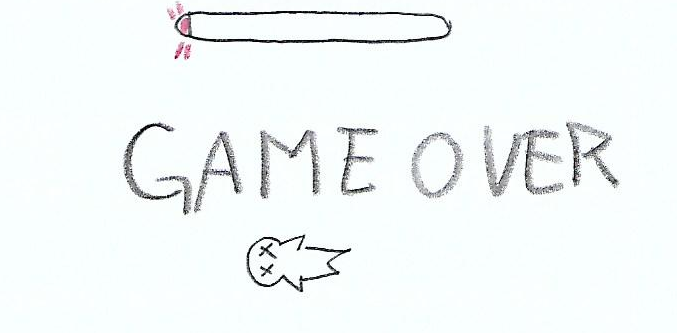 GAME OVER